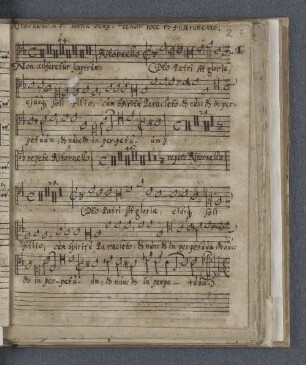 2
Ritornello
Non auferetur sceptrum Deo Patri sit gloria
ejusq soli Filio, cum Spiritu Paracleto, & nunc & in per-
petuum, & nunc & in perpetu- um
repete Ritornello repete Ritornello
Deo Patri sit gloria, ejusq soli
Filio, cum Spiritu Paracleto, & nunc & in perpetuum, & nunc
& in perpetu- um, & nunc & in perpe- tuum